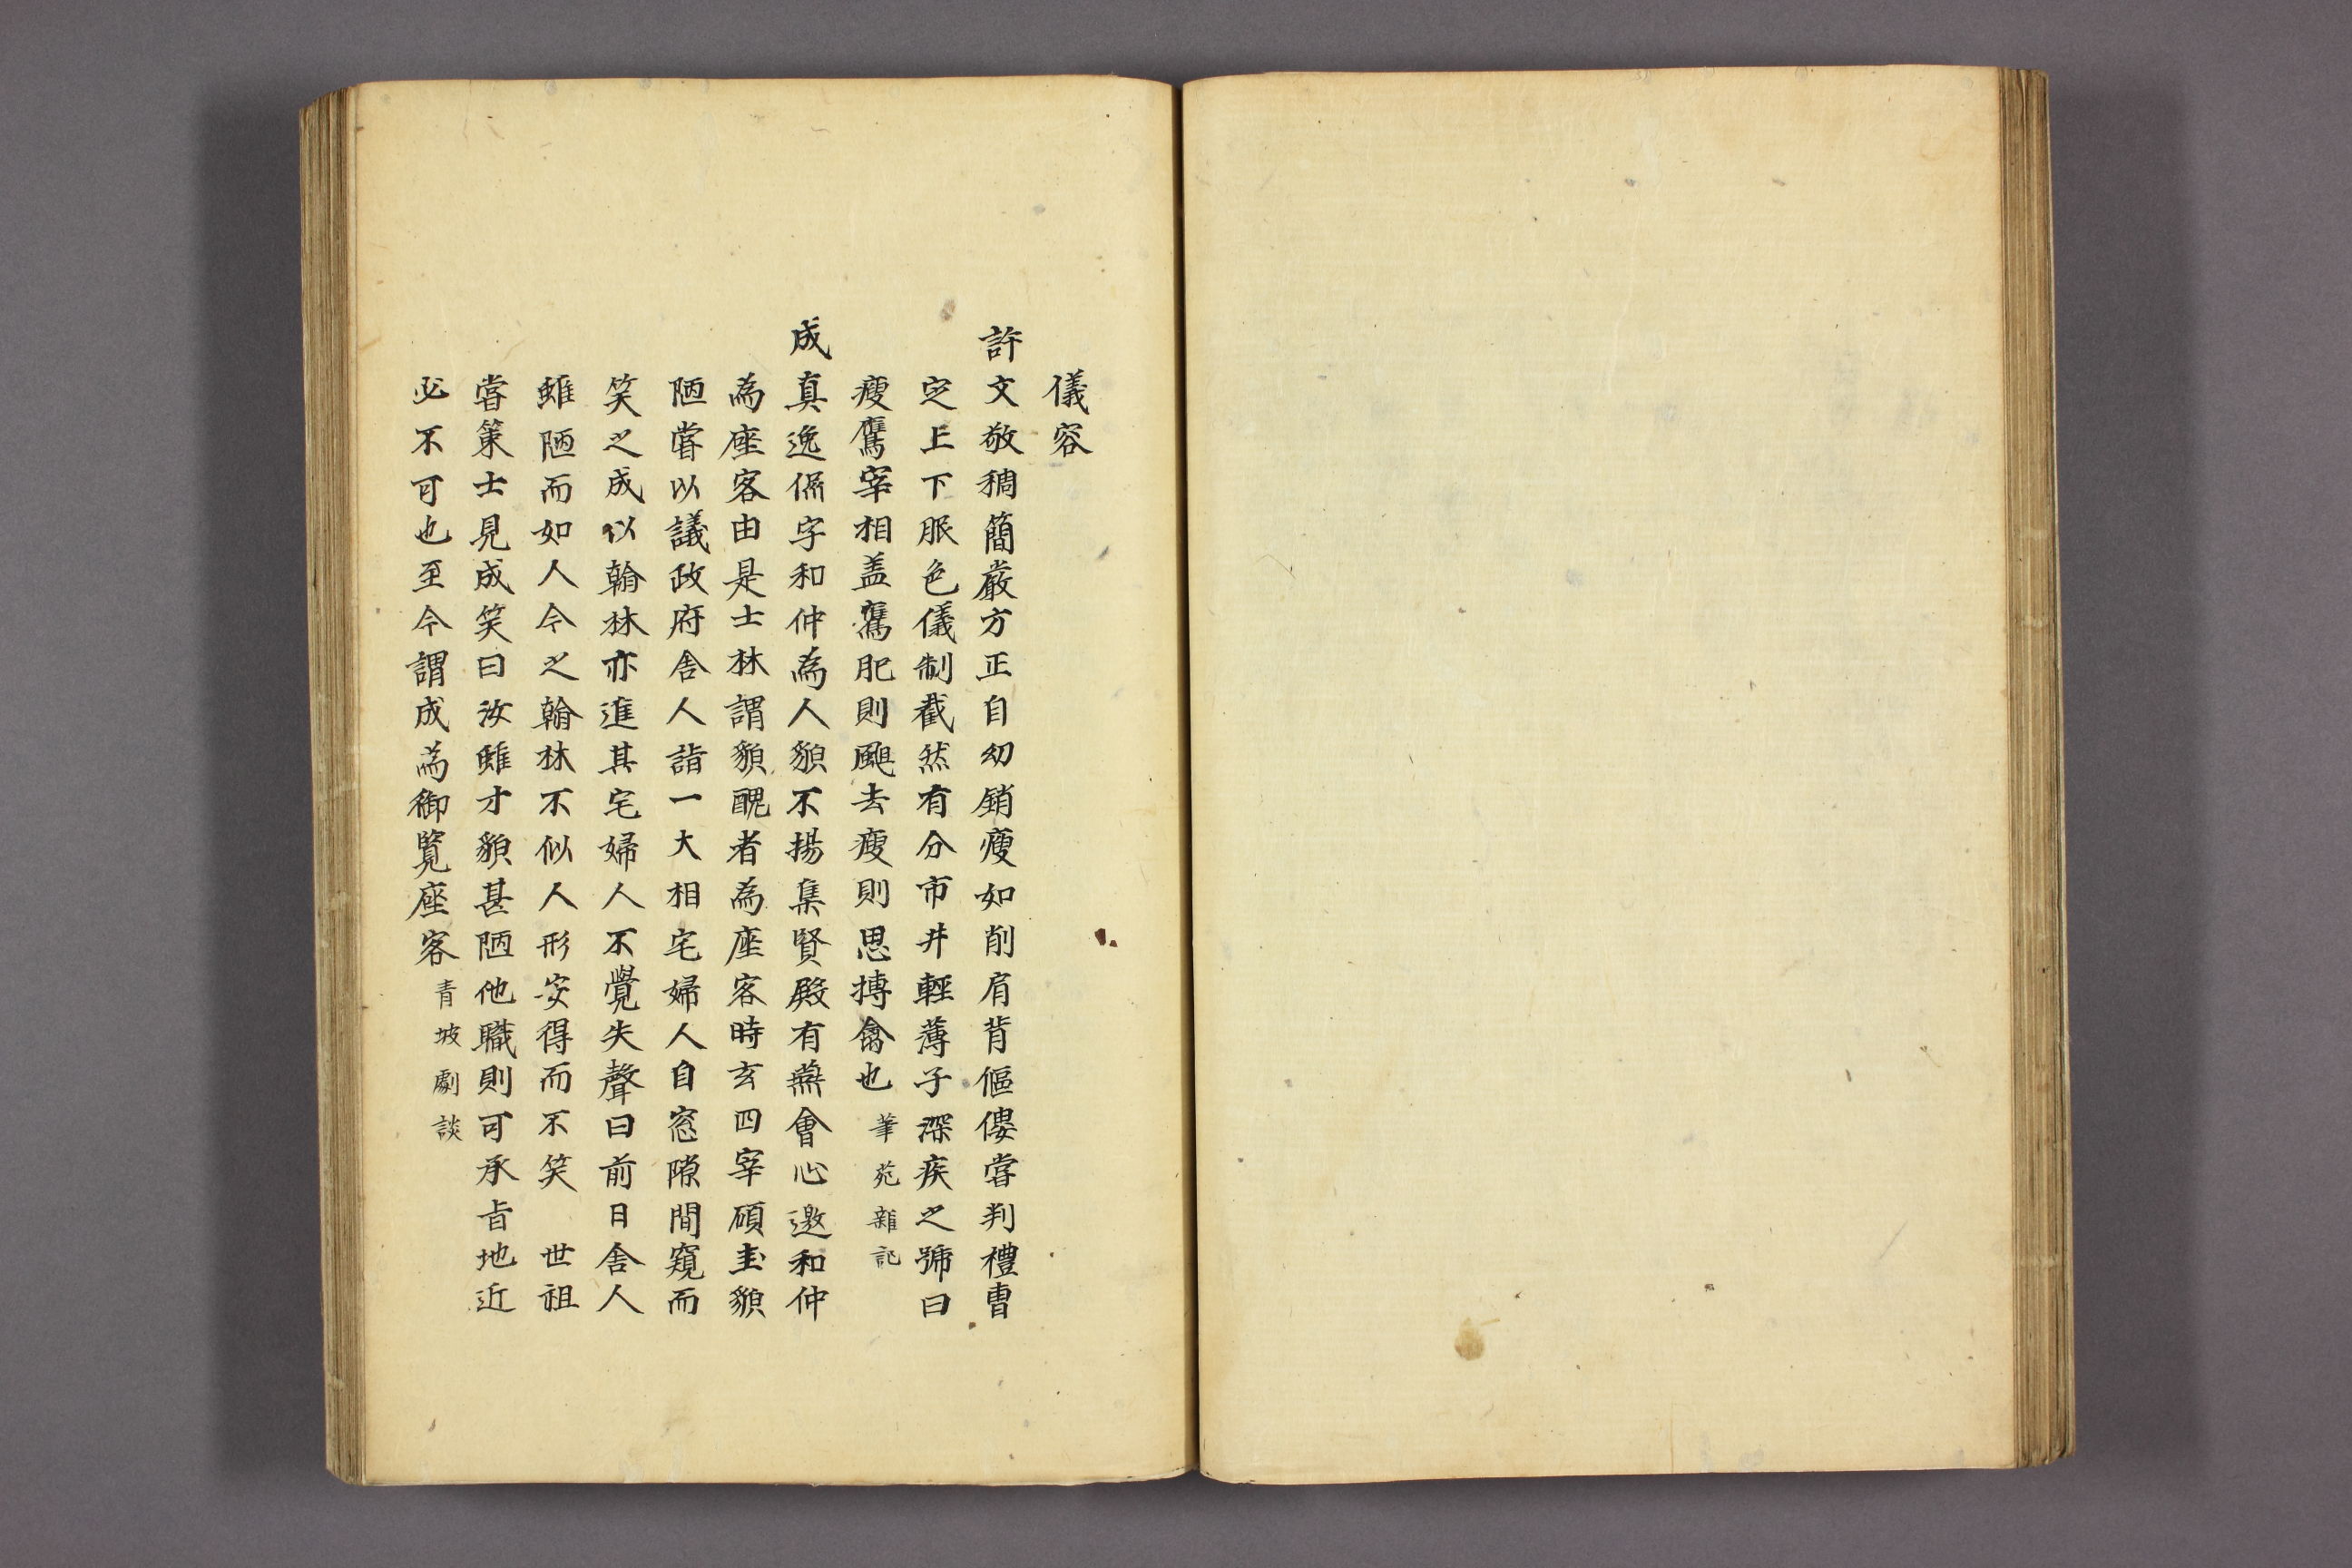 儀容
許文敬稠簡嚴方正自幼銷瘦如削肩背傴僂嘗判禮曹
定上下服色儀制截然有分市井輕薄子深疾之號曰
瘦鷹宰相盖鷹肥則颺去瘦則思搏禽也筆苑雜記
成真逸侃字和仲為人貌不揚集賢殿有燕會必邀和仲
為座客由是士林謂貌醜者為座客時玄四宰碩圭貌
陋嘗以議政府舍人詣一大相宅婦人自窓隙間窺而
笑之成以翰林亦進其宅婦人不覺失聲曰前日舍人
雖陋而如人今之翰林不似人形安得而不笑 世祖
嘗策士見成笑曰汝雖才貌甚陋他職則可承旨地近
必不可也至今謂成為御覽座客青坡劇談